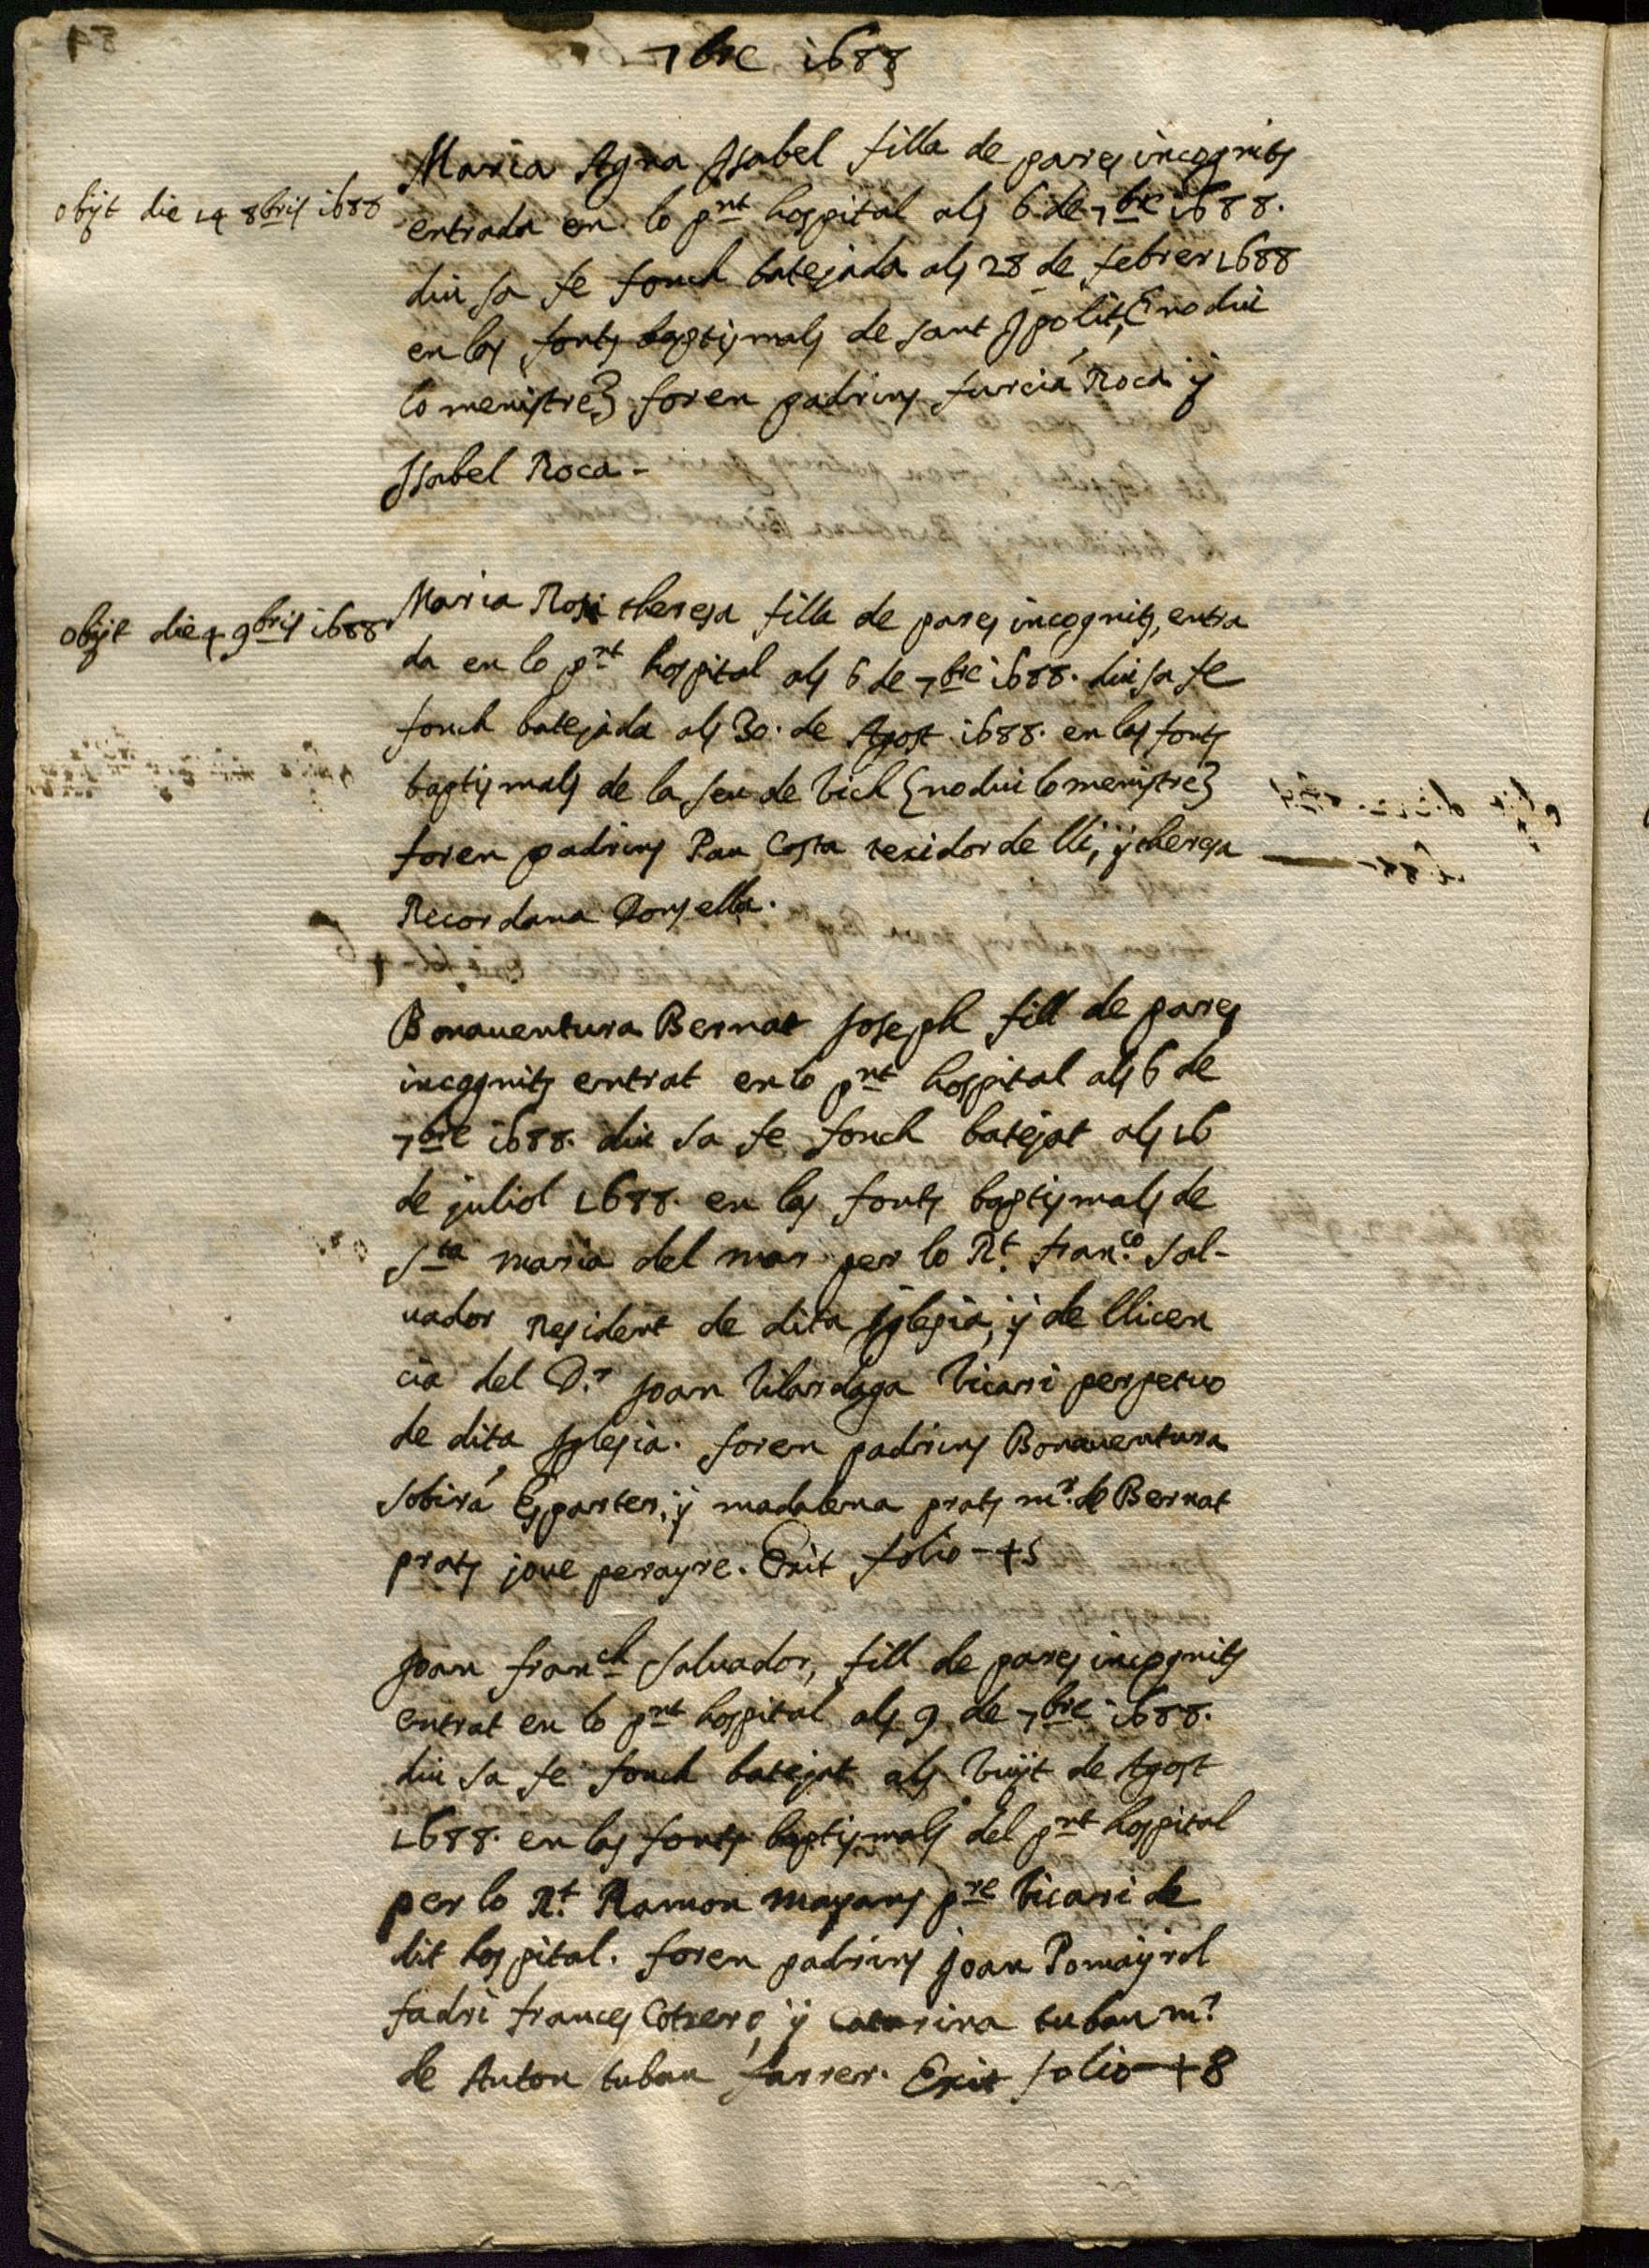 7bre 1688
Maria Agna Isabel filla de pares incognits
obijt die 14 8bris 1688
entrada en lo pnt hospital als 6 de 7bre 1688.
diu sa fe fonch batejada als 28 de febrer 1688
en las fonts baptismals de sant Ipolit, {no diu
lo menistre} foren padrins furcià Roca ÿ
Isabel Roca -
Maria Rosa theresa filla de pares incognits, entra
obijt die 4 9bris 1688
da en lo pnt hospital als 6 de 7bre 1688. diu sa fe
fonch batejada als 30. de Agost 1688. en las fonts
baptismals de la seu de Vich {no diu lo menistre}
foren padrins Pau Costa texidor de lli, ÿ theresa
Recordana Donsella.
Bonauentura Bernat Joseph fill de pares
incognits entrat en lo pnt hospital als 6 de
7bre 1688. diu sa fe fonch batejat als 16
de juliol 1688. en las fonts baptismals de
Sta maria del mar per lo Rt. franco. Sal-
uador Resident de dita Iglesia, ÿ de llicen
cia del Dr. Joan Vilardaga Vicari perpetuo
de dita Iglesia. foren padrins Bonauentura
Sobirá Esparter, ÿ madalena prats mr. de Bernat
prats joue perayre. Exit folio - +5
Joan franch Saluador, fill de pares incognits
entrat en lo pnt hospital als 9 de 7bre 1688.
diu sa fe fonch batejat als Vuijt de Agost
1688. en las fonts baptismals del pnt hospital
per lo Rt. Ramon mayans pre Vicari de
dit hospital. foren padrins Joan Pomayrol
fadri frances Cotxero, ÿ Catarina tubau mr.
de Anton tubau farrer. Exit folio - +8